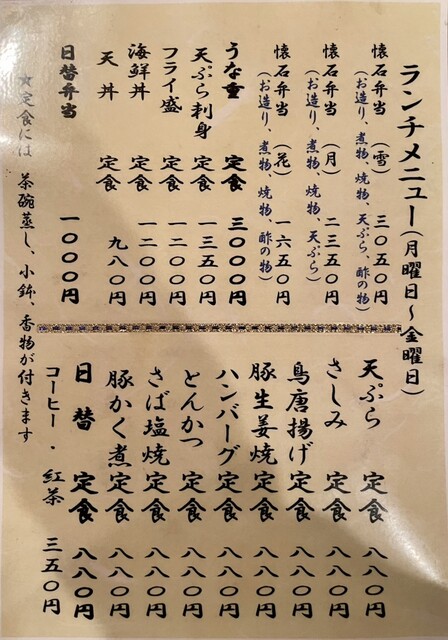 ランチメニュー(月曜日〜金曜日)
懐石弁当(雪)三〇五〇円
(お造り、煮物、焼物、天ぷら、酢の物)
懐石弁当(月)二三五〇円
(お造り、煮物、焼物、天ぷら)
懐石弁当(花)一六五〇円
(お造り、煮物、焼物、酢の物)
うな重定食三〇〇〇円
天ぷら刺身定食一三五〇円
フライ盛定食一二〇〇円
海鮮丼定食一二〇〇円
天丼定食九八〇円
日替弁当一〇〇〇円
★定食には茶碗蒸し、小鉢、香物が付きます
天ぷら定食八八〇円
さしみ定食八八〇円
鳥唐揚げ定食八八〇円
豚生姜焼定食八八〇円
ハンバーグ定食八八〇円
とんかつ定食八八〇円
さば塩焼定食八八〇円
豚かく煮定食八八〇円
日替定食八八〇円
コーヒー・紅茶三五〇円